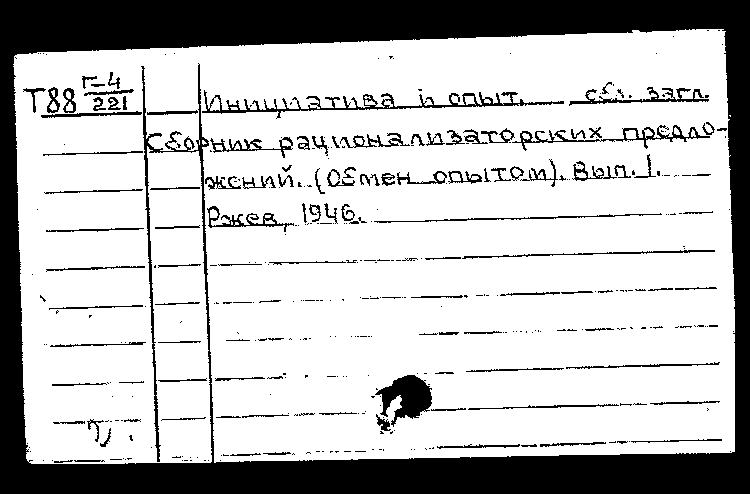 Т88 Г-4/221 Инициатива и опыт. см. загл.
Сборник рационализаторских предло-
жений. (Обмен опытом). Вып. 1.
Ржев, 1946.